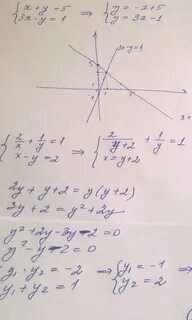 {x+y=5 ⇒ {y=-x+5
{3x-y=1 {y=3x-1
3x-y=1
5
5
{2/x + 1/y = 1 ⇒ {2/(y+2) + 1/y = 1
{x-y=2 {x=y+2
2y+y+2=y(y+2)
3y+2=y²+2y
y²+2y-3y-2=0
y²-y-2=0
y₁·y₂=-2 ⇒ {y₁=-1 ⇒
y₁+y₂=1 {y₂=2